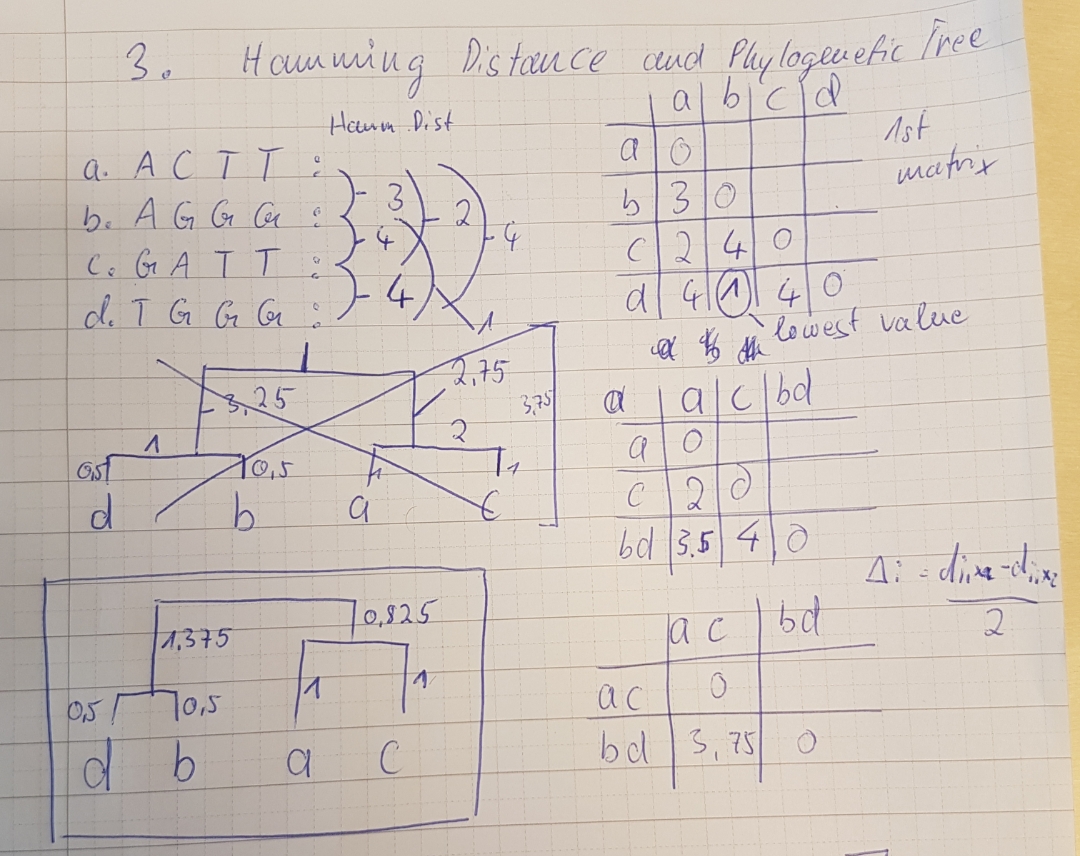 3. Hamming Distance and Phylogenetic Tree
Hamm. Dist
a. A C T T :
b. A G G G :
c. G A T T :
d. T G G G :
3
4
4
2
4
1
a b c d
a 0
b 3 0
c 2 4 0
d 4 1 4 0
1st
matrix
lowest value
3,25
2,75
3,75
1
2
0,5
0,5
1
1
d b a c
a c bd
a 0
c 2 0
bd 3.5 4 0
1,375
0,825
0,5
0,5
1
1
d b a c
ac bd
ac 0
bd 3,75 0
2